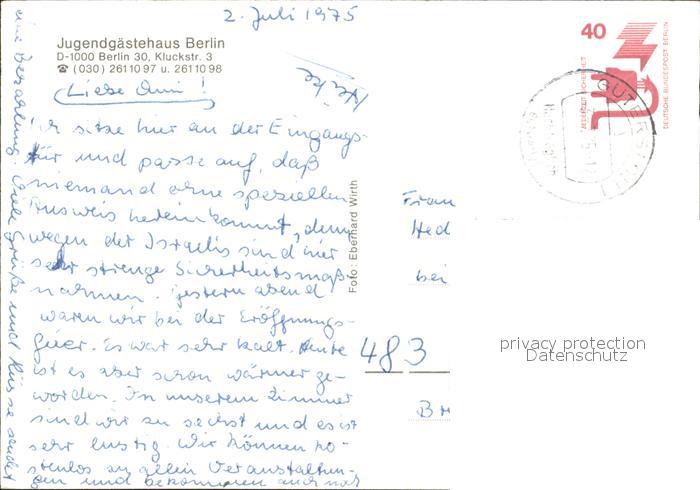 2. Juli 1975
Jugendgästehaus Berlin
D-1000 Berlin 30, Kluckstr. 3
☎ (030) 261 10 97 u. 261 10 98
Liebe Omi!
Ich sitze hier an der Eingangs-
tür und passe auf, daß
niemand ohne speziellen
Ausweis herein kommt, denn
wegen der Israelis sind hier
sehr strenge Sicherheitsmaß-
nahmen. Gestern abend
waren wir bei der Eröffnungs-
feier. Es war sehr kalt. Heute
ist es aber schon wärmer ge-
worden. In unserem Zimmer
sind wir zu sechst und es ist
sehr lustig. Wir können ko-
stenlos zu allen Veranstaltun-
gen und bekommen auch noch
eine Bezahlung. Viele Grüße und Küsse sendet
Heike
Foto: Eberhard Wirth
40
JEDERZEIT SICHERHEIT
DEUTSCHE BUNDESPOST BERLIN
GÜTERSLOH 1
Frau
Hed
bei
483
Br
privacy protection
Datenschutz